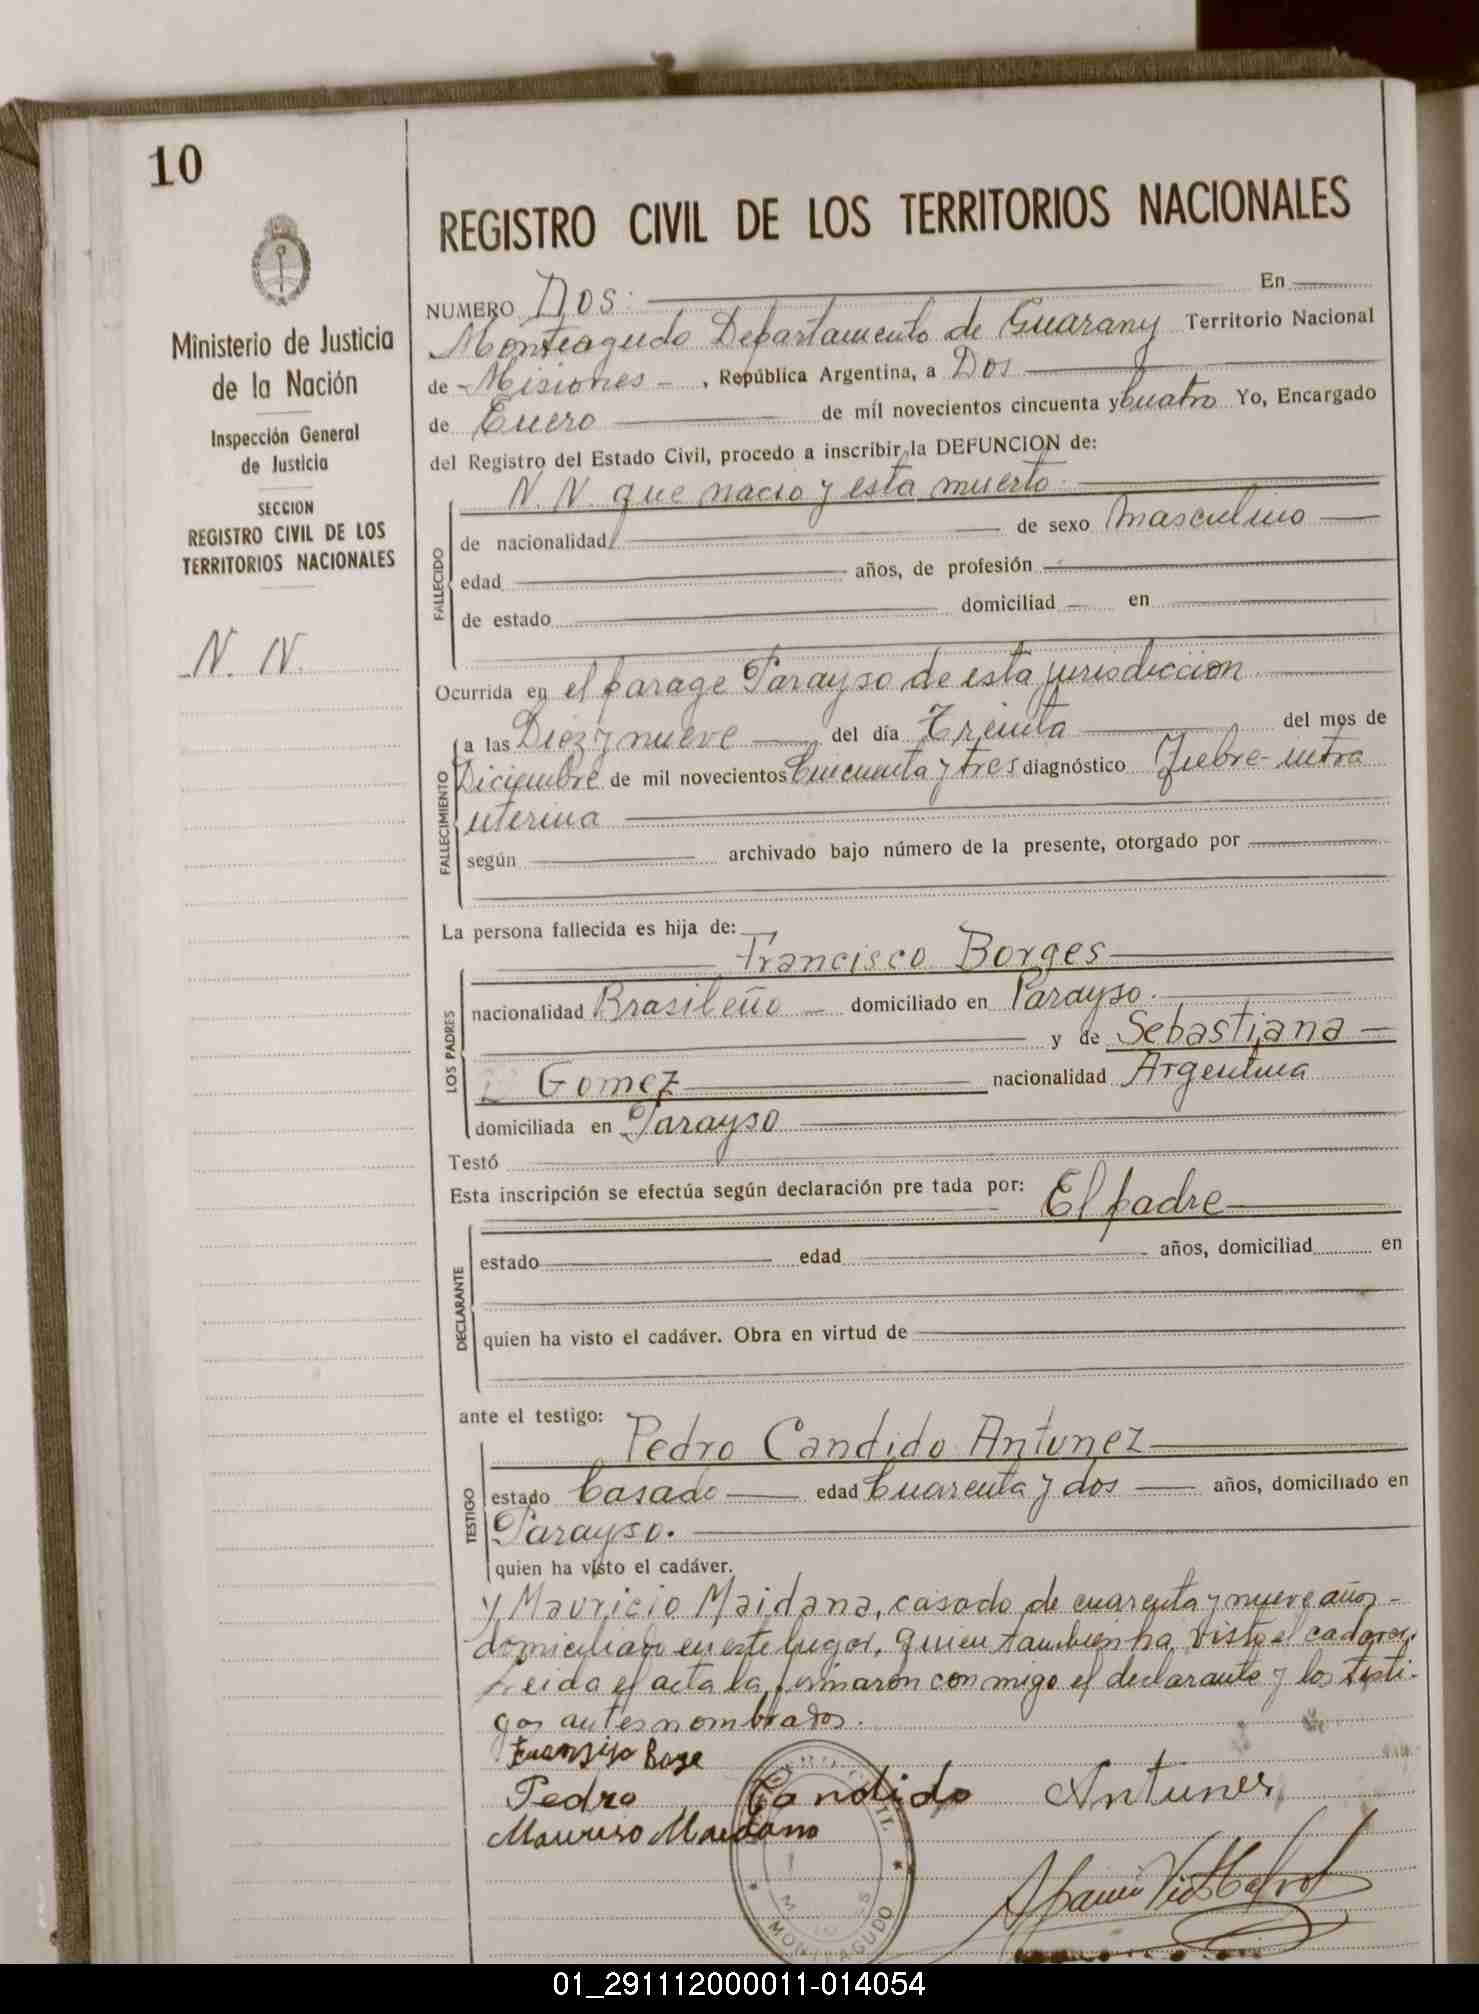 10
Ministerio de Justicia
de la Nación
Inspección General
de Justicia
SECCION
REGISTRO CIVIL DE LOS
TERRITORIOS NACIONALES
N. N.
REGISTRO CIVIL DE LOS TERRITORIOS NACIONALES
NUMERO Dos: En
Monteagudo Departamento de Guarany Territorio Nacional
de Misiones, República Argentina, a Dos
de Enero de mil novecientos cincuenta y Cuatro Yo, Encargado
del Registro del Estado Civil, procedo a inscribir la DEFUNCION de:
N. N. que nacio y esta muerto.
FALLECIDO
de nacionalidad de sexo Masculino
edad años, de profesión
de estado domiciliad en
Ocurrida en el parage Parayso de esta jurisdiccion
FALLECIMIENTO
a las Diez y nueve del día Treinta del mes de
Diciembre de mil novecientos Cincuenta y tres diagnóstico Fiebre-intra
uterina
según archivado bajo número de la presente, otorgado por
La persona fallecida es hija de:
LOS PADRES
Francisco Borges
nacionalidad Brasileño domiciliado en Parayso.
y de Sebastiana
Gomez nacionalidad Argentina
domiciliada en Parayso
Testó
Esta inscripción se efectúa según declaración pre tada por: El padre
DECLARANTE
estado edad años, domiciliad en
quien ha visto el cadáver. Obra en virtud de
ante el testigo:
TESTIGO
Pedro Candido Antunez
estado Casado edad Cuarenta y dos años, domiciliado en
Parayso.
quien ha visto el cadáver.
y Mauricio Maidana, casado de cuarenta y nueve años-
domiciliado en este lugar, quien tambien ha visto el cadaver.
Leida el acta la firmaron conmigo el declarante y los testi-
gos antes nombrados.
Pedro Candido Antunes
MONTEAGUDO
01_291112000011-014054